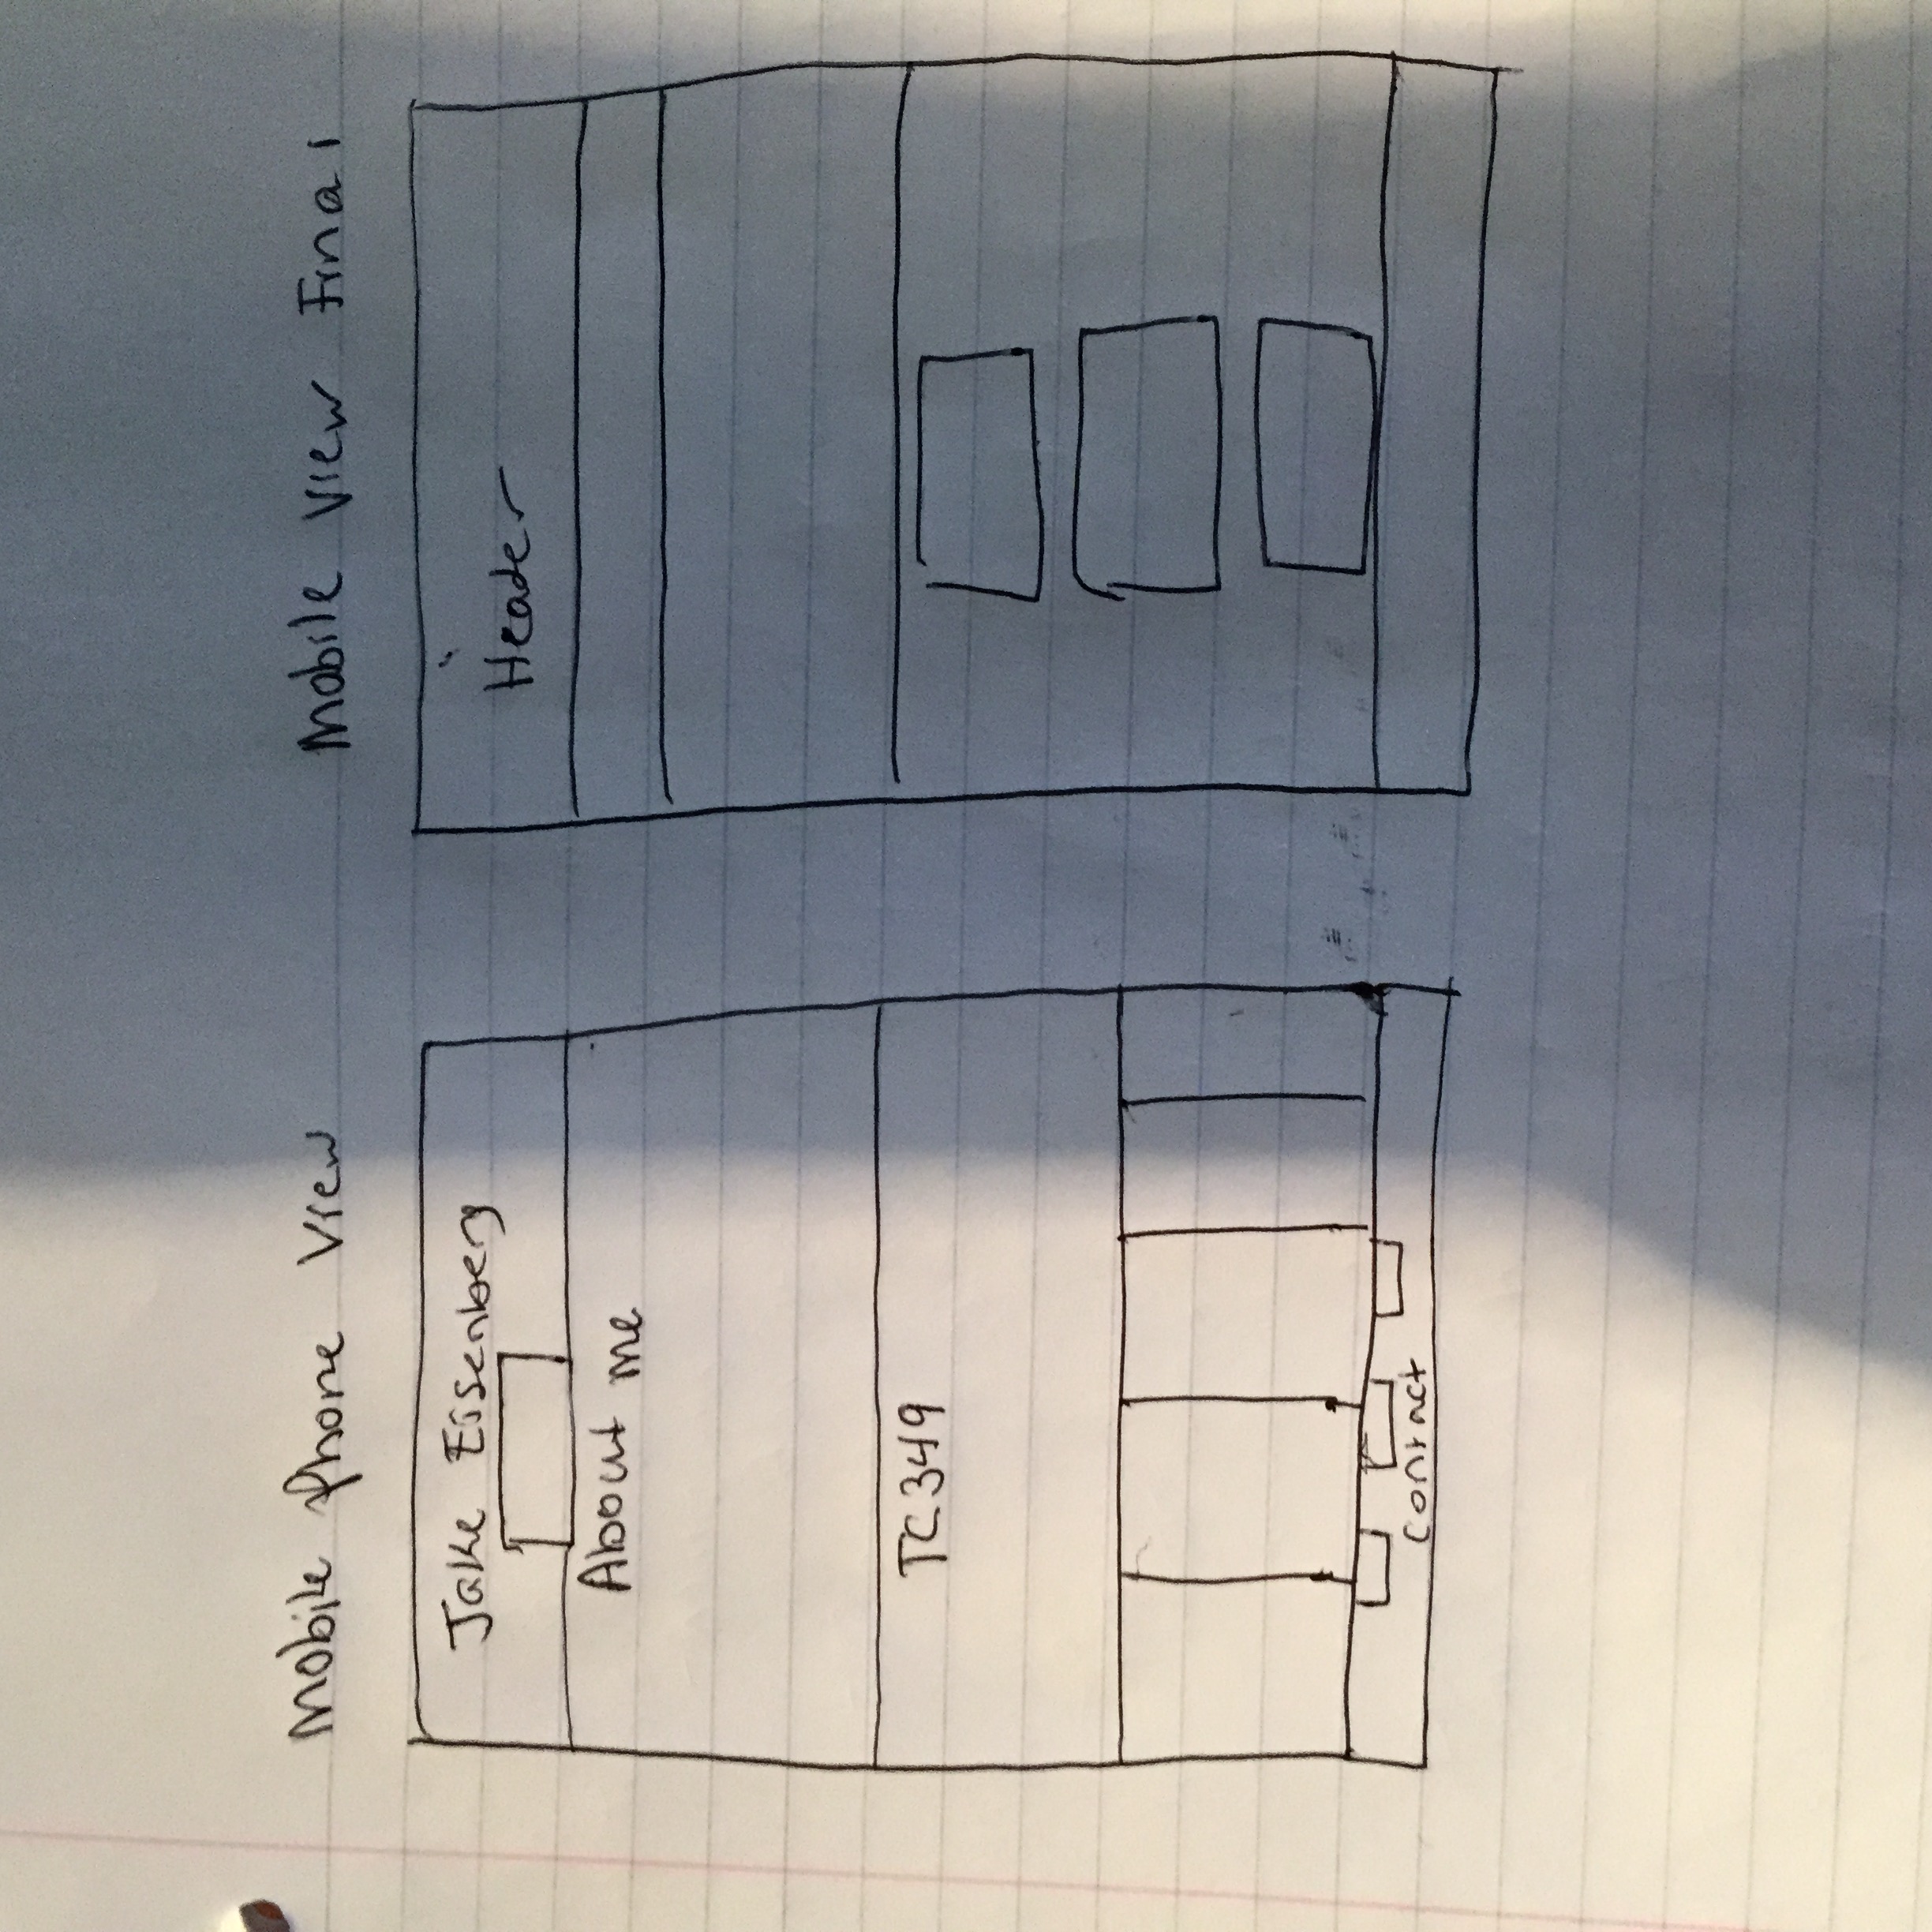 Mobile Phone View
Jake Eissenberg
About me
TC349
Contact
Mobile View Final
Header